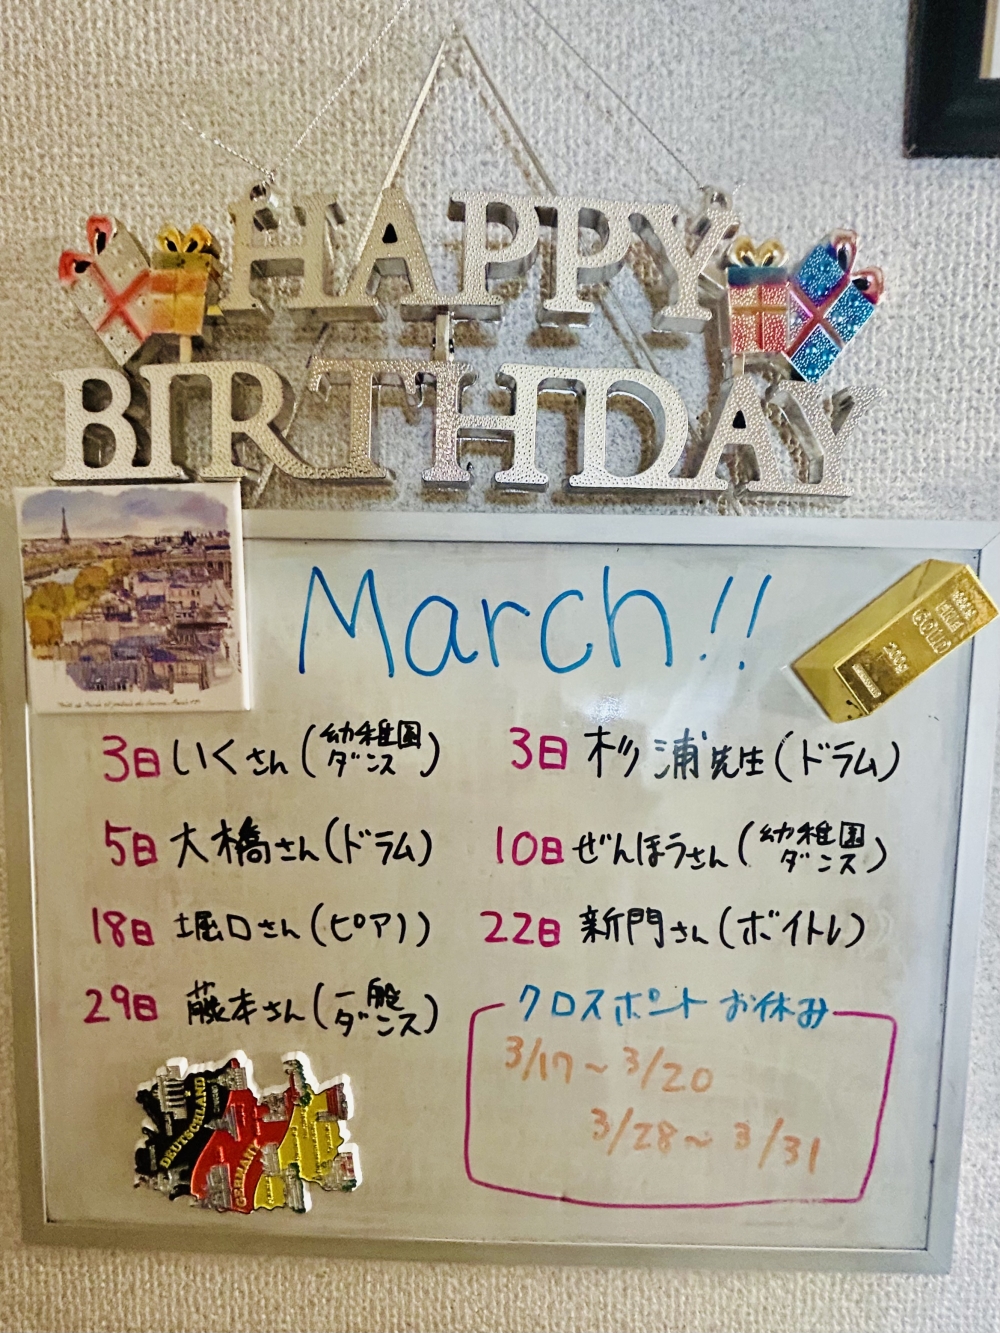 HAPPY
BIRTHDAY
March!!
3日 いくさん (幼稚園ダンス)
3日 杉浦先生 (ドラム)
5日 大橋さん (ドラム)
10日 ぜんほうさん (幼稚園ダンス)
18日 堀口さん (ピアノ)
22日 新門さん (ボイトレ)
29日 藤本さん (一般ダンス)
クロスポイント お休み
3/17~3/20
3/28~3/31
FINE
GOLD
200g
DEUTSCHLAND
GERMANY